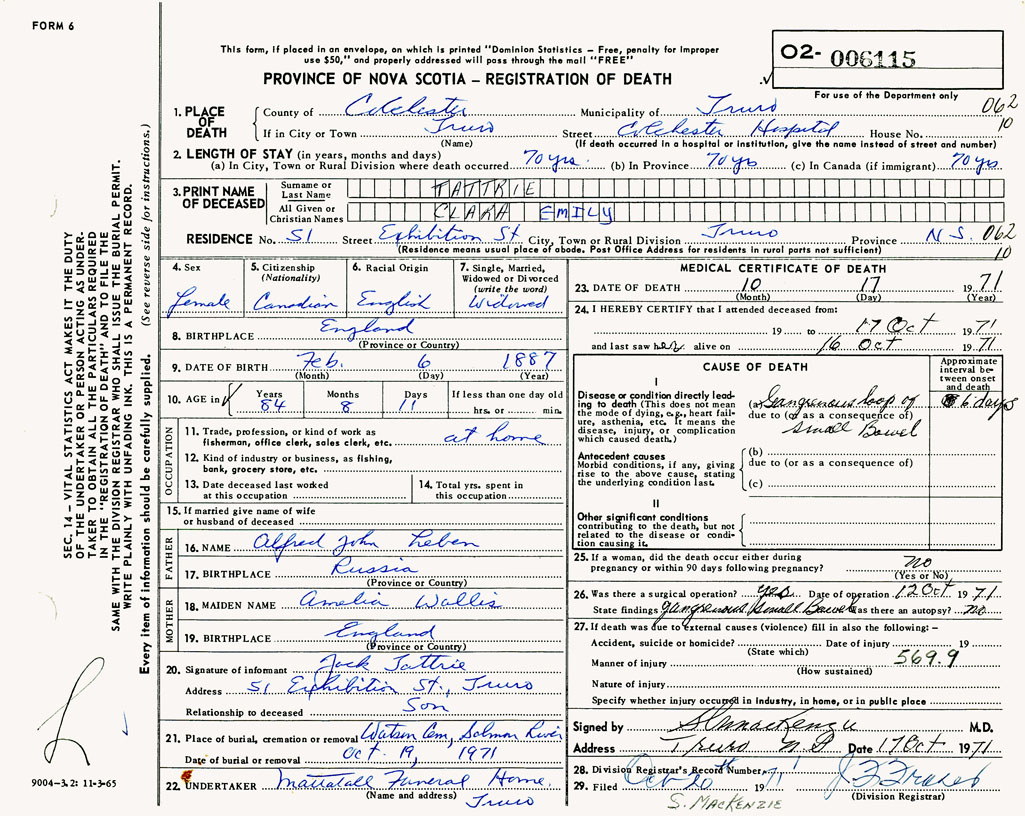 FORM 6
This form, if placed in an envelope, on which is printed "Dominion Statistics – Free, penalty for improper
use $50," and properly addressed will pass through the mail "FREE"
PROVINCE OF NOVA SCOTIA – REGISTRATION OF DEATH
O2- 006115
For use of the Department only
062
10
1. PLACE OF DEATH
County of Colchester Municipality of Truro
If in City or Town Truro Street Colchester Hospital House No.
(Name) (If death occurred in a hospital or institution, give the name instead of street and number)
2. LENGTH OF STAY (in years, months and days)
(a) In City, Town or Rural Division where death occurred 70 yrs. (b) In Province 70 yrs (c) In Canada (if immigrant) 70 yrs
3. PRINT NAME OF DECEASED
Surname or Last Name TATTRIE
All Given or Christian Names CLARA EMILY
RESIDENCE No. 51 Street Exhibition St City, Town or Rural Division Truro Province N.S. 062
(Residence means usual place of abode. Post Office Address for residents in rural parts not sufficient) 10
4. Sex
female
5. Citizenship
(Nationality)
Canadian
6. Racial Origin
English
7. Single, Married,
Widowed or Divorced
(write the word)
Widowed
8. BIRTHPLACE England
(Province or Country)
9. DATE OF BIRTH Feb. 6 1887
(Month) (Day) (Year)
10. AGE in
Years Months Days If less than one day old
84 8 11 hrs. or min.
OCCUPATION
11. Trade, profession, or kind of work as
fisherman, office clerk, sales clerk, etc. at home
12. Kind of industry or business, as fishing,
bank, grocery store, etc.
13. Date deceased last worked
at this occupation
14. Total yrs. spent in
this occupation
15. If married give name of wife
or husband of deceased
FATHER
16. NAME Alfred John Leben
17. BIRTHPLACE Russia
(Province or Country)
MOTHER
18. MAIDEN NAME Amelia Wallis
19. BIRTHPLACE England
(Province or Country)
20. Signature of informant Jack Tattrie
Address 51 Exhibition St., Truro
Relationship to deceased Son
21. Place of burial, cremation or removal Watson Cem, Salmon River
Date of burial or removal Oct 19, 1971
22. UNDERTAKER Mattatall Funeral Home.
(Name and address) Truro
MEDICAL CERTIFICATE OF DEATH
23. DATE OF DEATH 10 17 1971
(Month) (Day) (Year)
24. I HEREBY CERTIFY that I attended deceased from:
19 to 17 Oct 1971
and last saw her alive on 16 Oct 1971
CAUSE OF DEATH
Approximate
interval be-
tween onset
and death
I
Disease or condition directly lead-
ing to death (This does not mean
the mode of dying, e.g., heart fail-
ure, asthenia, etc. It means the
disease, injury, or complication
which caused death.)
(a) Gangrenous loop of 6 days
due to (or as a consequence of)
small Bowel
Antecedent causes
Morbid conditions, if any, giving
rise to the above cause, stating
the underlying condition last.
(b)
due to (or as a consequence of)
(c)
II
Other significant conditions
contributing to the death, but not
related to the disease or condi-
tion causing it.
25. If a woman, did the death occur either during
pregnancy or within 90 days following pregnancy? no
(Yes or No)
26. Was there a surgical operation? yes Date of operation 12 Oct 1971
State findings gangrenous small Bowel Was there an autopsy? no
27. If death was due to external causes (violence) fill in also the following: –
Accident, suicide or homicide? Date of injury 19
(State which) 569.9
Manner of injury
(How sustained)
Nature of injury
Specify whether injury occurred in industry, in home, or in public place
Signed by S MacKenzie M.D.
Address Truro N.S. Date 17 Oct 1971
28. Division Registrar's Record Number
29. Filed Oct 20 1971
(Division Registrar)
S. MACKENZIE
SEC. 14 – VITAL STATISTICS ACT MAKES IT THE DUTY
OF THE UNDERTAKER OR PERSON ACTING AS UNDER-
TAKER TO OBTAIN ALL THE PARTICULARS REQUIRED
IN THE "REGISTRATION OF DEATH" AND TO FILE THE
SAME WITH THE DIVISION REGISTRAR WHO SHALL ISSUE THE BURIAL PERMIT.
WRITE PLAINLY WITH UNFADING INK. THIS IS A PERMANENT RECORD.
Every item of information should be carefully supplied. (See reverse side for instructions.)
9004–3.2: 11-3-65